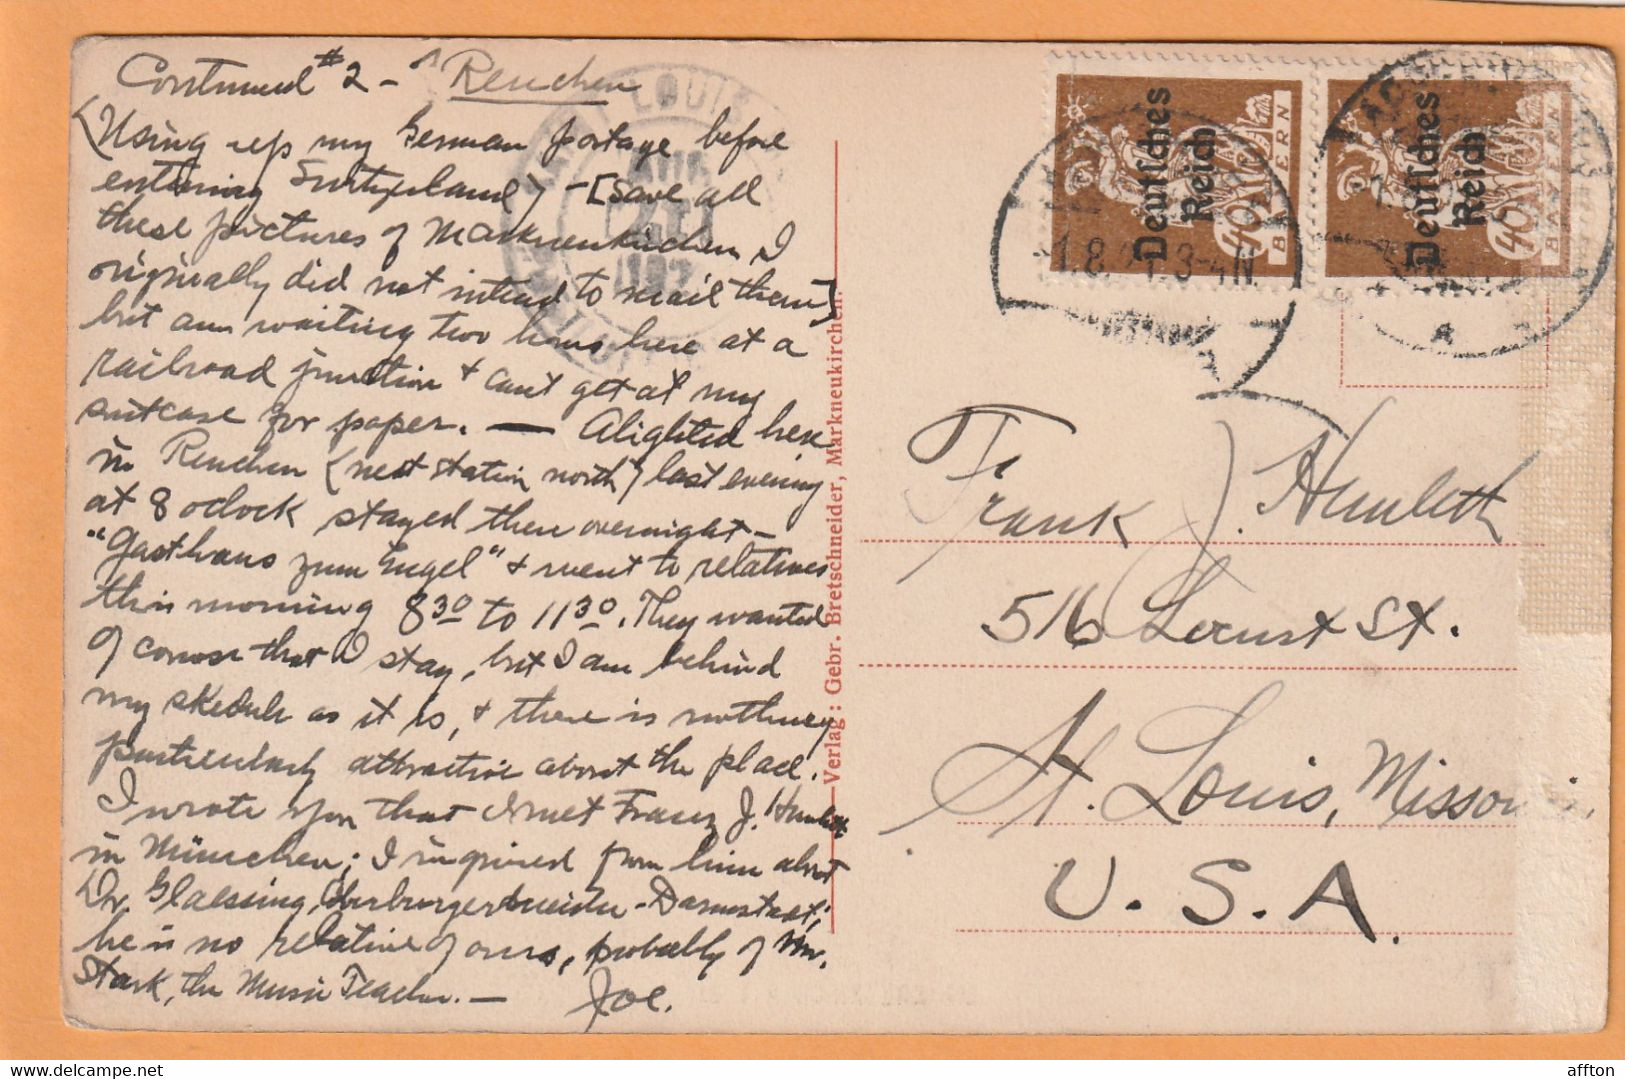 Continued #2 - Renchen
(Using up my German postage before
entering Switzerland) - [Save all
these pictures of Markneukirchen, I
originally did not intend to mail them]
but am waiting two hours here at a
railroad junction + can't get at my
suitcase for paper. — Alighted here
in Renchen (next station north) last evening
at 8 oclock stayed there overnight -
"Gasthaus zum Engel" + went to relatives
this morning 8 30 to 11 30. They wanted
of course that I stay, but I am behind
my skedule as it is, + there is nothing
particularly attractive about the place.
I wrote you that I met Franz J.
in München; I inquired from him about
Dr. Glaessing, Oberburgermeister - Darmstadt;
he is no relative of ours, probably of Mr.
Stark, the Music Teacher. — Joe.
Verlag: Gebr. Bretschneider, Markneukirchen.
Deutsches
Reich
40
BAYERN
Deutsches
Reich
40
BAYERN
1.8.21. 3-4 N.
LOUIS
Frank J.
516 Locust St.
St. Louis, Missouri
U.S.A.
affton